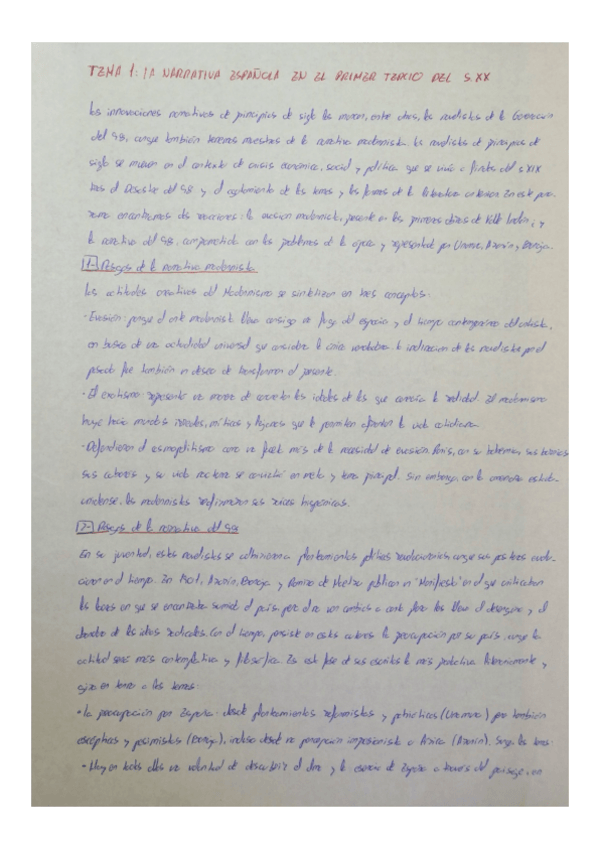 TEMA 1: LA NARRATIVA ESPAÑOLA EN EL PRIMER TERCIO DEL S.XX
Las innovaciones narrativas de principios de siglo las marcan, entre otros, los novelistas de la Generación
del 98, aunque también tenemos muestras de la narrativa modernista. Los novelistas de principios de
siglo se mueven en el contexto de crisis económica, social y política que se vivió a finales del s.XIX
tras el Desastre del 98 y el agotamiento de los temas y las formas de la literatura anterior. En este pano-
rama encontramos dos reacciones: la evasión modernista, presente en las primeras obras de Valle Inclán; y
la narrativa del 98, comprometida con los problemas de la época y representada por Unamuno, Azorín y Baroja.
1- Rasgos de la narrativa modernista
Las actitudes creativas del Modernismo se sintetizan en tres conceptos:
-Evasión: porque el arte modernista lleva consigo una fuga del espacio y el tiempo contemporáneo del artista,
en busca de una actualidad universal que considera la única verdadera. la inclinación de los novelistas por el
pasado fue también un deseo de transformar el presente.
-El exotismo: representa una manera de concretar los ideales de los que carecía la realidad. El modernismo
huye hacia mundos irreales, míticos y lejanos que le permiten afrontar la vida cotidiana.
-Defendieron el cosmopolitismo como una faceta más de la necesidad de evasión. París, con su bohemia,
sus cabarets y su vida nocturna se convirtió en meta y tema principal. Sin embargo, con la amenaza estado-
unidense, los modernistas reafirmaron sus raíces hispánicas.
2- Rasgos de la narrativa del 98
En su juventud, estos novelistas se adhirieron a planteamientos políticos revolucionarios, aunque sus posturas evolu-
cionan en el tiempo. En 1901, Azorín, Baroja y Ramiro de Maeztu publican un 'Manifiesto' en el que criticaban
las bases en que se encontraba sumido el país, pero al no ver cambios a corto plazo los llevó al desengaño y al
abandono de las ideas radicales. Con el tiempo, persiste en estos autores la preocupación por su país, aunque la
actitud será más contemplativa y filosófica. Es esta fase de sus escritos la más productiva literariamente y
gira en torno a los temas:
•La preocupación por España: desde planteamientos reformistas y patrióticos (Unamuno) pero también
escépticas y pesimistas (Baroja), incluso desde una percepción impresionista (Azorín). Surgen los temas:
- Hay en todos ellos una voluntad de descubrir el alma y la esencia de España a través del paisaje, en